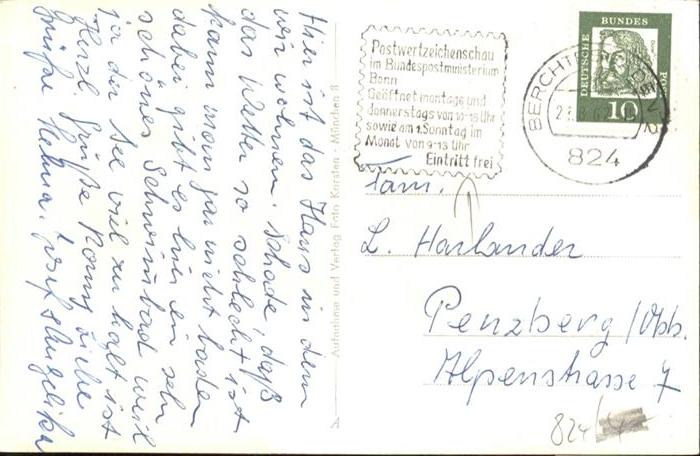 Hier ist das Haus in dem
wir wohnen. Schade, daß
das Wetter so schlecht ist
kann man gar nicht baden
dabei gibt es hier ein sehr
schönes Schwimmbad weil
ja der See viel zu kalt ist
Herzl. Grüße Romy Liebe
Grüße Helma. Josef + Angelika
Aufnahme und Verlag Foto Korsten - München 8
Postwertzeichenschau
im Bundespostministerium
Bonn
Geöffnet montags und
donnerstags von 10-16 Uhr
sowie am 1. Sonntag im
Monat von 9-13 Uhr
Eintritt frei
BERCHT
DEN
2
824
DEUTSCHE BUNDESPOST
Dürer
10
Fam.
L. Harlander
Penzberg / Obb.
Alpenstrasse 7
824